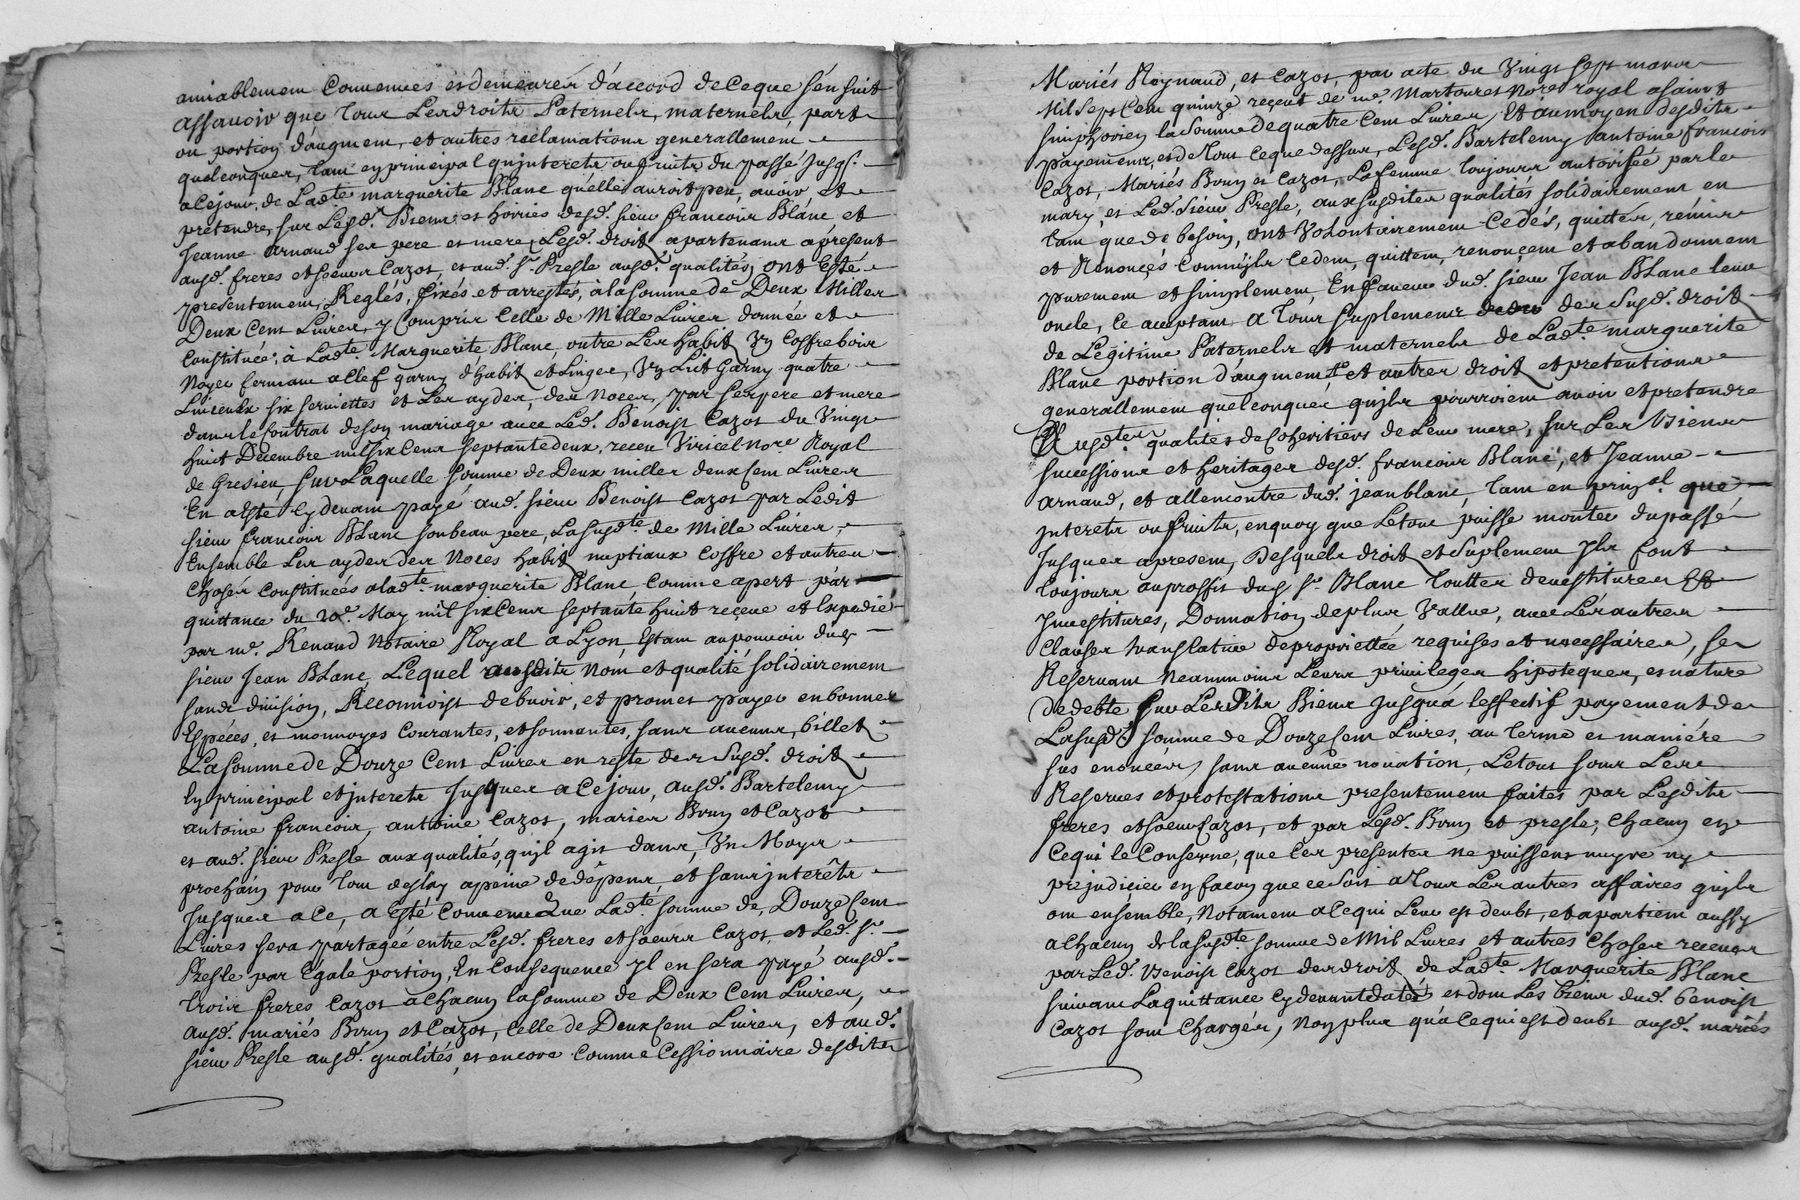 amiablement Convenues et demeurés d'accord de ce que s'en suit
assavoir que tous Les droits Paternels, maternels, part
ou portion d'augment, et autres reclamations generallement
quelconques, tant en principal qu'interets ou fruits du passé jusqs.
a ce jour, de Ladte marguerite Blanc qu'elle auroit peu avoir et
pretendre sur Lesd. Biens et hoiries desd. sieur francois Blanc et
Jeanne Arnaud ses pere et mere, Lesd. droits apartenans apresent
ausd. freres et soeurs Cazot, et aud. Sr. Presle ausd. qualités, ont Esté
presentement Reglés, fixés et arrestés, à la somme de Deux Milles
Deux Cent Livres, y Compris Celle de Mille Livres donnée et
Constituée à Ladte Marguerite Blanc, outre Les habits Vn Coffre bois
Noyer fermant a clef garny d'habits et Linges, Vn Lit Garny quatre
Linceulx six serviettes et Les aydes des Noces, par ses pere et mere
dans le Contrat de son mariage avec Led. Benoist Cazot du Vingt
huit Decembre mil six Cens septante deux, receu Viricel Nore Royal
de Gresieu, sur Laquelle somme de Deux milles deux Cent Livres
En a Esté Cy devant payé aud. sieur Benoist Cazot par Ledit
sieur francois Blanc son beau pere, La susdte de Mille Livres
Ensemble Les aydes des Noces habits nuptiaux Coffre et autres
Choses Constituées a ladte. marguerite Blanc Comme apert par
quittance du 20e. May mil six Cens septante huit reçeue et Expedié
par me. Renaud Notaire Royal a Lyon, Estant au pouvoir dud.
sieur Jean Blanc, Lequel ausdits Nom et qualité solidairement
sans division, Reconnoist debvoir, et promet payer en bonnes
Espéces, et monnoyes Courantes, et sonnantes, sans aucuns billets
La somme de Douze Cent Livres en reste des Susd. droits
En principal et interets Jusques a Ce jour, ausd. Bartelemy
antoine francois, antoine Cazot, mariés Brun et Cazot
et aud. sieur Presle aux qualités, qu'il agit dans, Vn Moys
prochain pour tout deslay a peine de dépens, et sans interêts
Jusques a Ce, a Esté Convenu Que Ladte. somme de Douze Cent
Livres sera partagée entre Lesd. freres et soeurs Cazot, et Led. Sr.
Presle par Egale portion, En Consequence yl en sera payé ausd.
trois freres Cazot a Chacun la somme de Deux Cent Livres,
ausd. mariés Brun et Cazot, Celle de Deux Cent Livres, et aud.
sieur Presle ausd. qualités, et encore Comme Cessionnaire desdits
Mariés Reynaud, et Cazot, par acte du Vingt sept mars
Mil Sept Cent quinze reçeut de me. Martouret Nore royal a saint
simphorien la somme de quatre Cent Livres, Et au moyen desdits
payements, et de tout Ce que dessus, Lesd. Bartelemy antoine francois
Cazot, Mariés Brun et Cazot, La femme toujours autorisée par le
mary, et Led. Sieur Presle, aux susdites qualités solidairement en
tant que de besoin, ont Volontairement Cedés, quittés, rémis
et Renoncés Comm'ils Cedent, quittent, renoncent et abandonnent
purement et simplement, En faveur dud. sieur Jean Blanc leur
oncle, Ce aceptant a tous suplements des Susd. droits
de Légitime Paternels et maternels de Ladte. marguerite
Blanc portion d'augment et autres droits et pretentions
generallement quelconques qu'ils pourroient avoir et pretendre
Ausdtes qualités de Coheritiers de Leur mere, sur Les Biens
successions et heritages desd. francois Blanc, et Jeanne
arnaud, et allencontre dud. jean blanc, tant en prinsal. que
interets ou fruits, en quoy que Letout puisse monter du passé
Jusques apresent, Desquels droits et suplement Ils font
toujours au proffit dud Sr. Blanc toutte devestitures Et
Investitures, Donnation de plus Vallue, avec Les autres
Clauses translative de proprietté requises et necessaires, se
Reservant Neanmoins Leurs privileges hipoteques, et nature
de debte sur Lesdits Biens Jusqu'a Leffectif payement de
La susd. somme de Douze Cent Livres, au terme et maniére
sus enoncés, sans aucune novation, Letout sous Les
Reserves et protestations presentement faites par Lesdits
freres et soeurs Cazot, et par Lesd. Brun et presle, Chacun en
Ce qui le Conserne, que Ces presentes Ne puissent nuyre ny
prejudicier en facon que ce soit a tous Les autres affaires qu'ils
ont ensemble, Notament a Ce qui Leur est deubt, et apartient aussy
a Chacun de la susdte somme de Mil Livres et autres Choses receues
par Led. Benoist Cazot des droits de Ladte. Marguerite Blanc
suivant La quittance Cy devant datée et dont Les biens dud. benoist
Cazot sont Chargés, Non plus qu'a Ce qui est deubt ausd. mariés